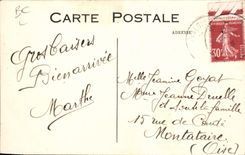 BC
CARTE POSTALE
ADRESSE
30
Gros baisers
Bien arrivée
Marthe
Mlle Jeanne Goyat
Mme Jeanne
et toute la famille
15 rue de Condé
Montataire
(Oise)